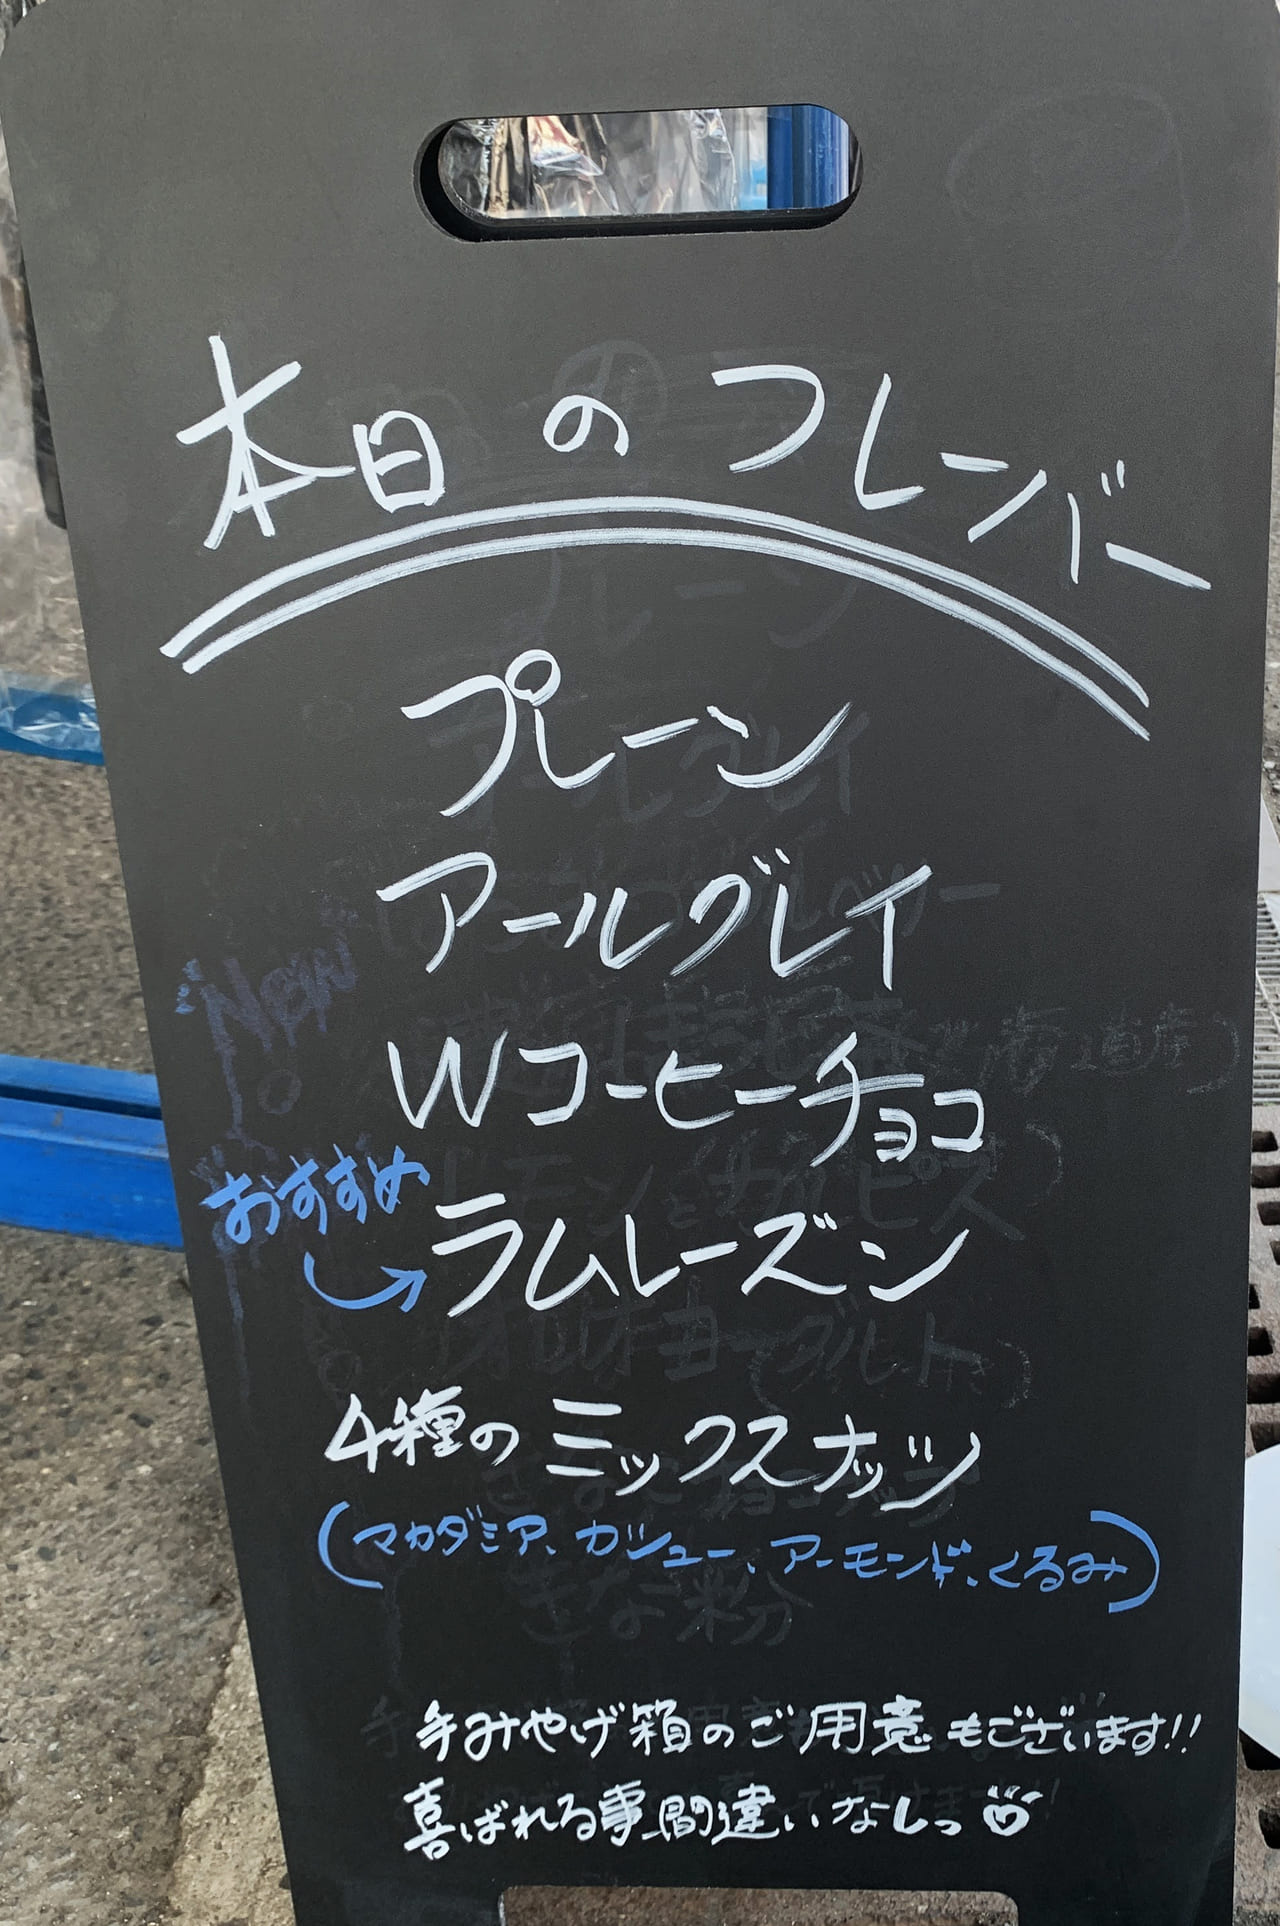 本日のフレンバー
プレーン
アールグレイ
Wコーヒーチョコ
おすすめ
ラムレーズン
4種のミックスナッツ
(マカダミア、カシュー、アーモンド、くるみ)
手みやげ箱のご用意もございます!!
喜ばれる事間違いなしっ